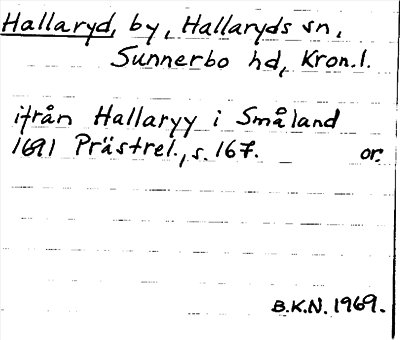 Hallaryd, by, Hallaryds sn,
Sunnerbo hd, Kron.l.
ifrån Hallaryy i Småland
1691 Prästrel., s. 167. or.
B.K.N. 1969.